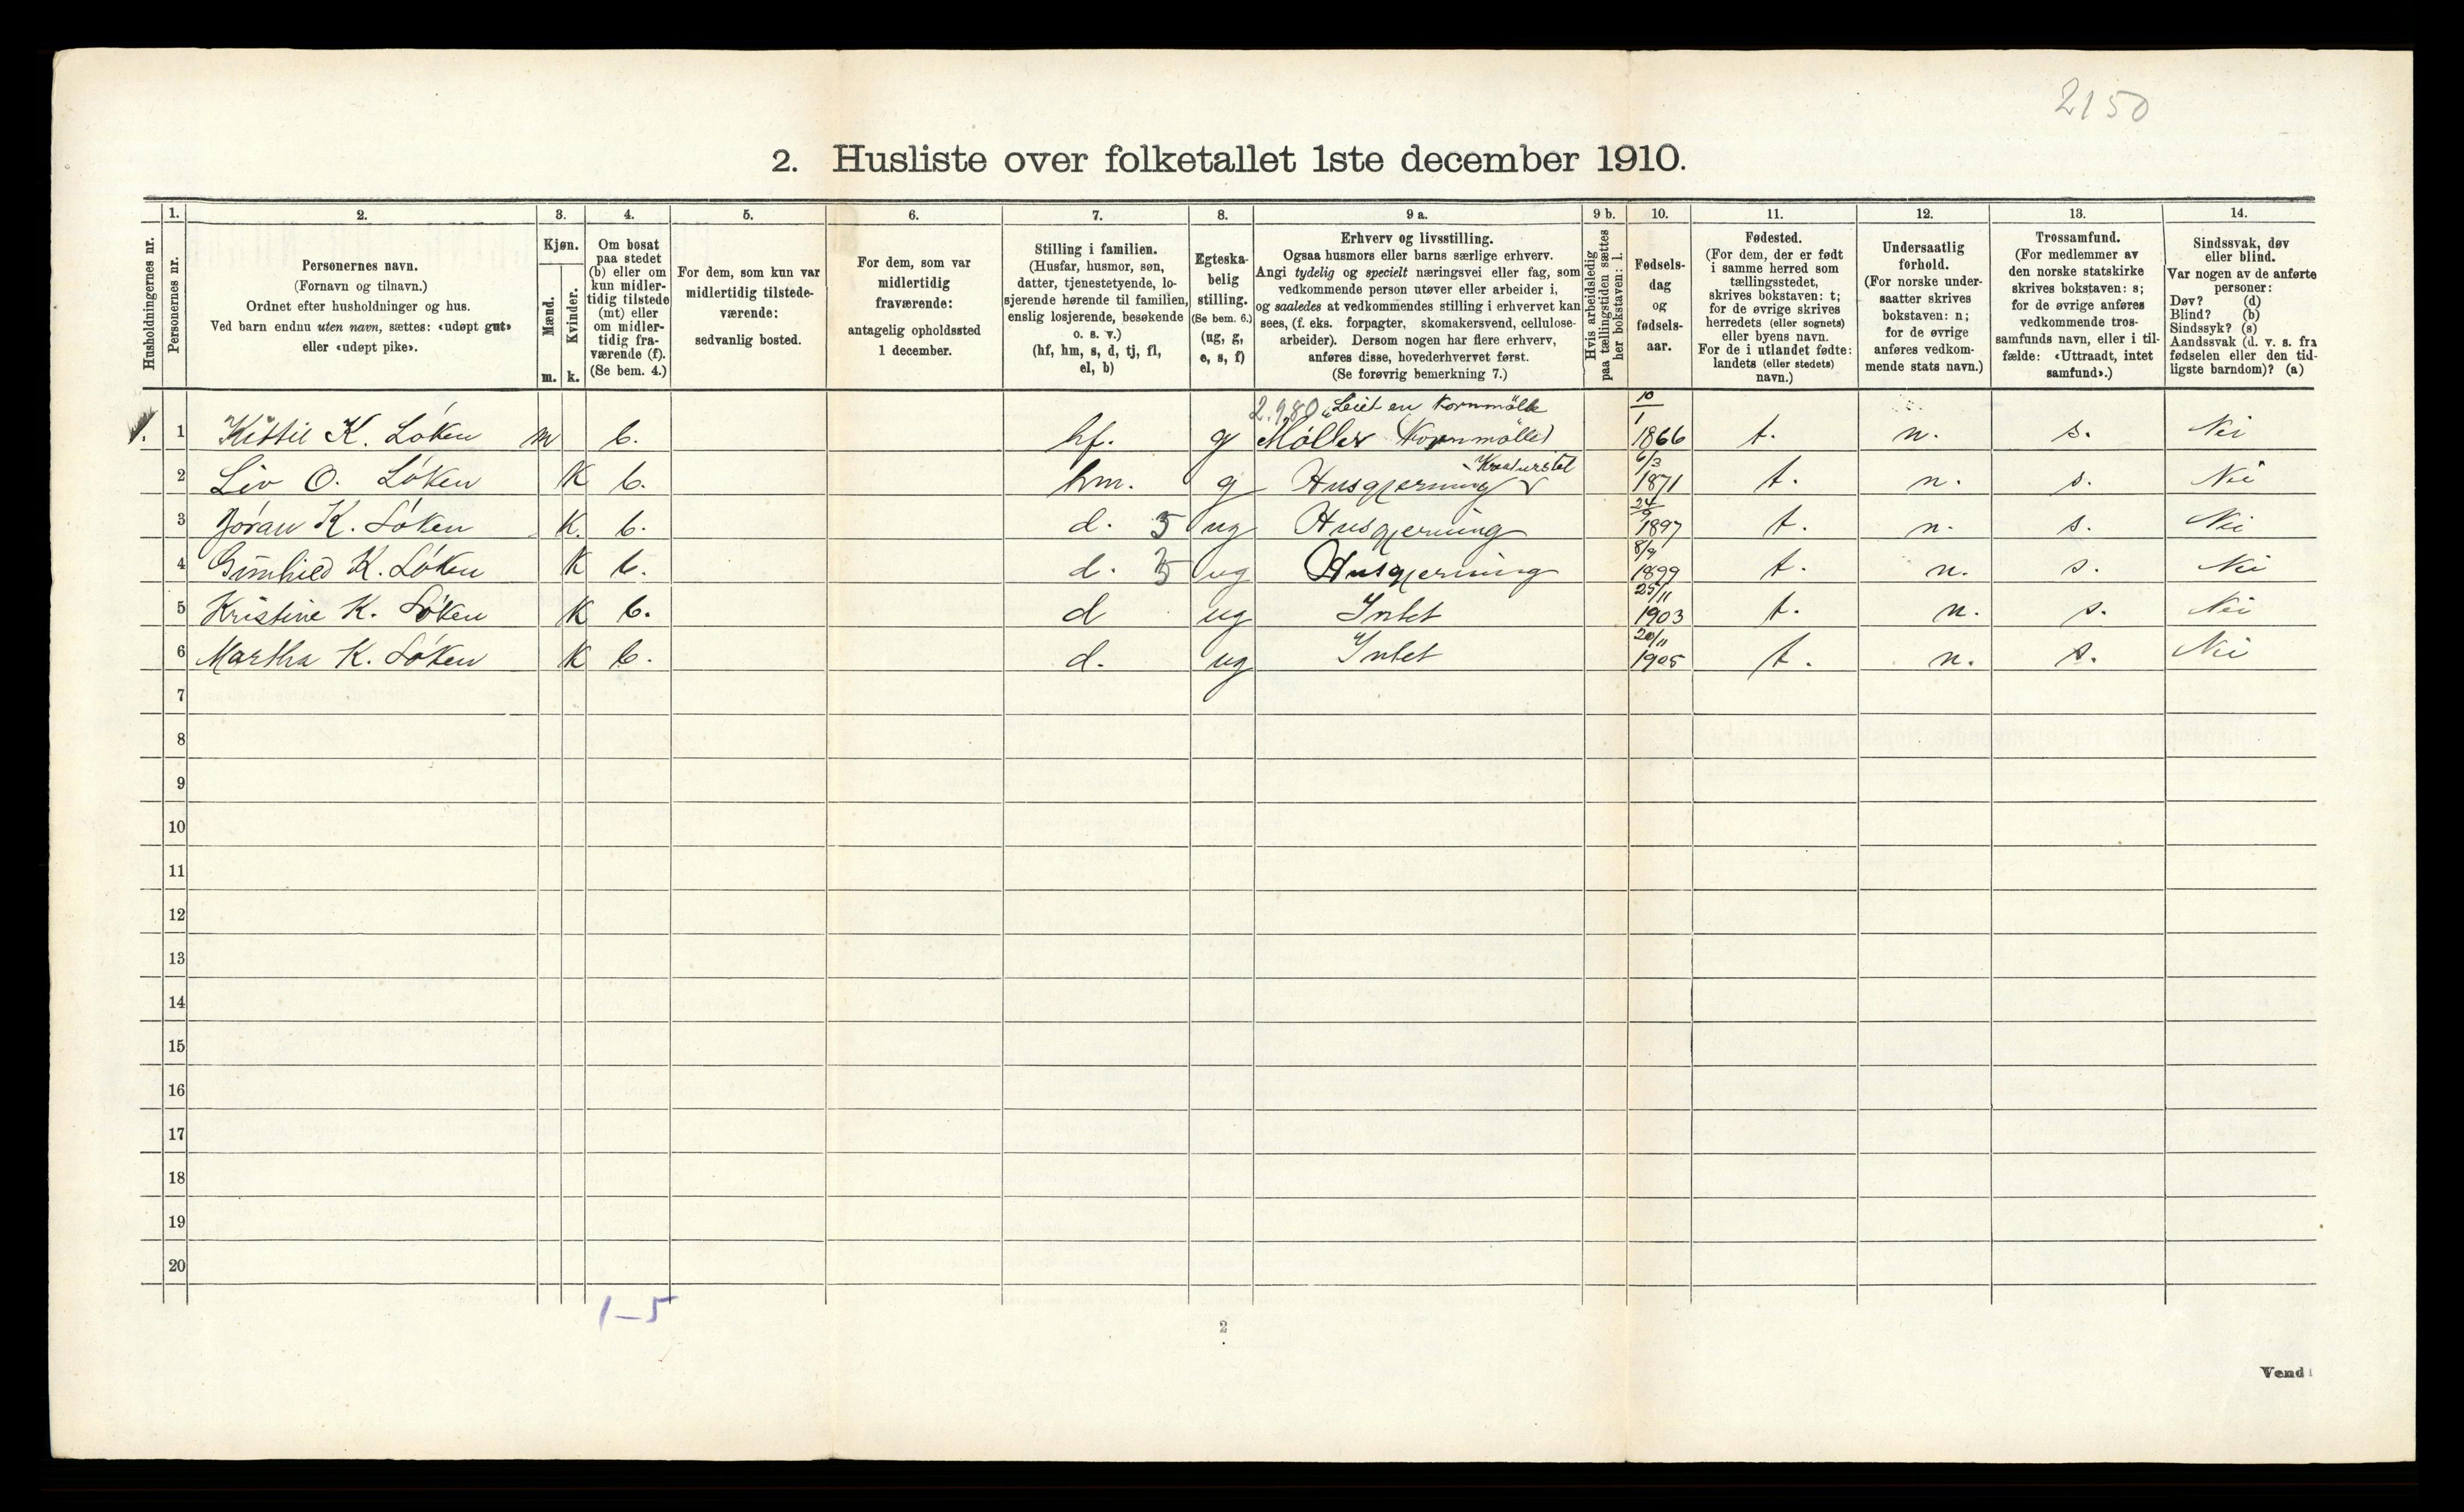 2150
2. Husliste over folketallet 1ste december 1910.
Husholdningernes nr.
1.
Personernes nr.
2.
Personernes navn.
(Fornavn og tilnavn.)
Ordnet efter husholdninger og hus.
Ved barn endnu uten navn, sættes: «udøpt gut»
eller «udøpt pike».
3.
Kjøn.
Mænd.
Kvinder.
m. k.
4.
Om bosat
paa stedet
(b) eller om
kun midler-
tidig tilstede
(mt) eller
om midler-
tidig fra-
værende (f).
(Se bem. 4.)
5.
For dem, som kun var
midlertidig tilstede-
værende:
sedvanlig bosted.
6.
For dem, som var
midlertidig
fraværende:
antagelig opholdssted
1 december.
7.
Stilling i familien.
(Husfar, husmor, søn,
datter, tjenestetyende, lo-
sjerende hørende til familien,
enslig losjerende, besøkende
o. s. v.)
(hf, hm, s, d, tj, fl,
el, b)
8.
Egteska-
belig
stilling.
(Se bem. 6.)
(ug, g,
e, s, f)
9 a.
Erhverv og livsstilling.
Ogsaa husmors eller barns særlige erhverv.
Angi tydelig og specielt næringsvei eller fag, som
vedkommende person utøver eller arbeider i,
og saaledes at vedkommendes stilling i erhvervet kan
sees, (f. eks. forpagter, skomakersvend, cellulose-
arbeider). Dersom nogen har flere erhverv,
anføres disse, hovederhvervet først.
(Se forøvrig bemerkning 7.)
9 b.
Hvis arbeidsledig
paa tællingstiden sættes
her bokstaven: l.
10.
Fødsels-
dag
og
fødsels-
aar.
11.
Fødested.
(For dem, der er født
i samme herred som
tællingsstedet,
skrives bokstaven: t;
for de øvrige skrives
herredets (eller sognets)
eller byens navn.
For de i utlandet fødte:
landets (eller stedets)
navn.)
12.
Undersaatlig
forhold.
(For norske under-
saatter skrives
bokstaven: n;
for de øvrige
anføres vedkom-
mende stats navn.)
13.
Trossamfund.
(For medlemmer av
den norske statskirke
skrives bokstaven: s;
for de øvrige anføres
vedkommende tros-
samfunds navn, eller i til-
fælde: «Uttraadt, intet
samfund».)
14.
Sindssvak, døv
eller blind.
Var nogen av de anførte
personer:
Døv? (d)
Blind? (b)
Sindssyk? (s)
Aandssvak (d. v. s. fra
fødselen eller den tid-
ligste barndom)? (a)
2.980 Leiet en Kornmölle 10
1. 1 Kittil K. Löken m b. hf. g Möller (Kornmölle) 1 1866 t. n. s. Nei
Kreaturstel 6/3
2 Liv O. Löken K b. hm. g Husgjerning 1871 t. n. s. Nei
24/9
3 Jöran K. Löken K. b. d. 5 ug Husgjerning 1897 t. n. s. Nei
8/9
4 Gunhild K. Löken K b. d. 5 ug Husgjerning 1899 t. n. s. Nei
25/11
5 Kristine K. Löken K b. d ug Intet 1903 t. n. s. Nei
20/11
6 Martha K. Löken K b. d. ug Intet 1905 t. n. s. Nei
7
8
9
10
11
12
13
14
15
16
17
18
19
20
1–5
2
Vend